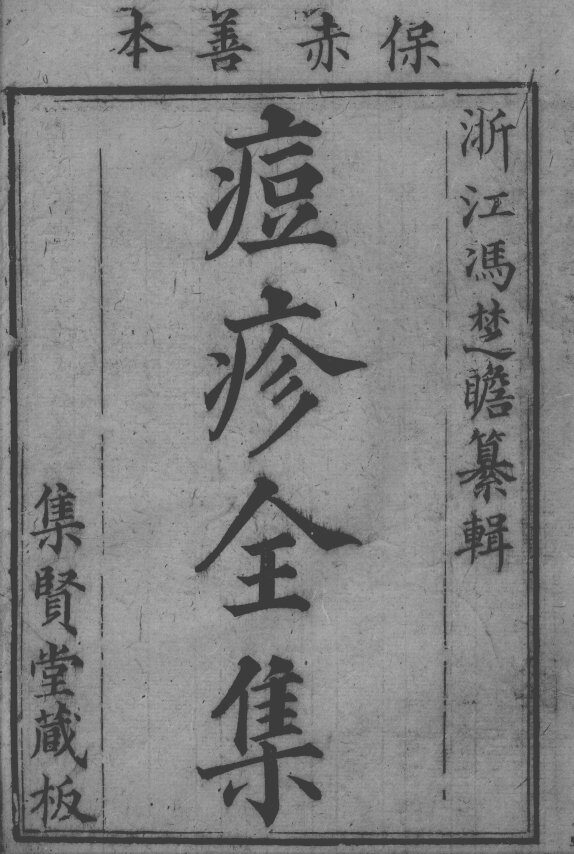 保赤善本
浙江馮楚瞻纂輯
痘疹全集
集賢堂藏板